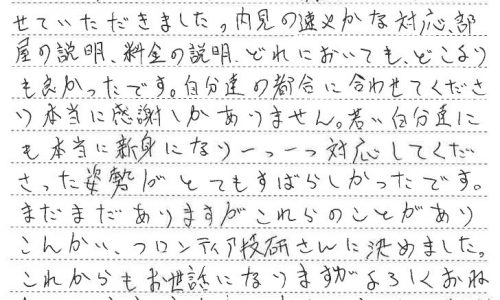 せていただきました。内見の速やかな対応、部
屋の説明、料金の説明、どれにおいても、どこより
も良かったです。自分達の都合に合わせてくださ
り本当に感謝しかありません。若い自分達に
も本当に新身になり一つ一つ対応してくだ
さった姿勢がとてもすばらしかったです。
まだまだありますがこれらのことがあり
こんかい、フロンティア技研さんに決めました。
これからもお世話になりますがよろしくおね